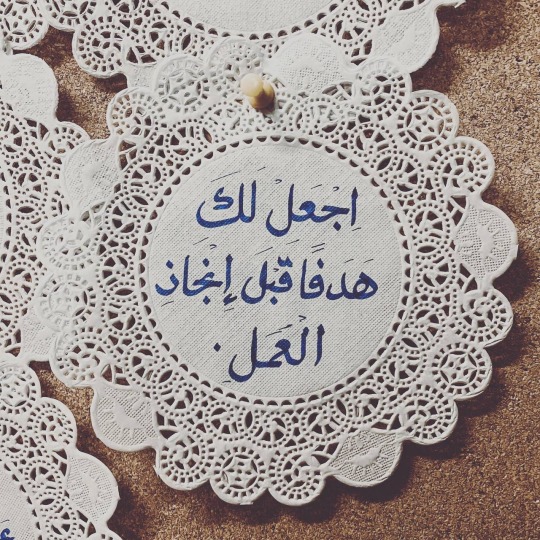 اِجْعَلْ لَكَ
هَدَفًا قَبْلَ إِنْجَاذِ
الْعَمَلِ.